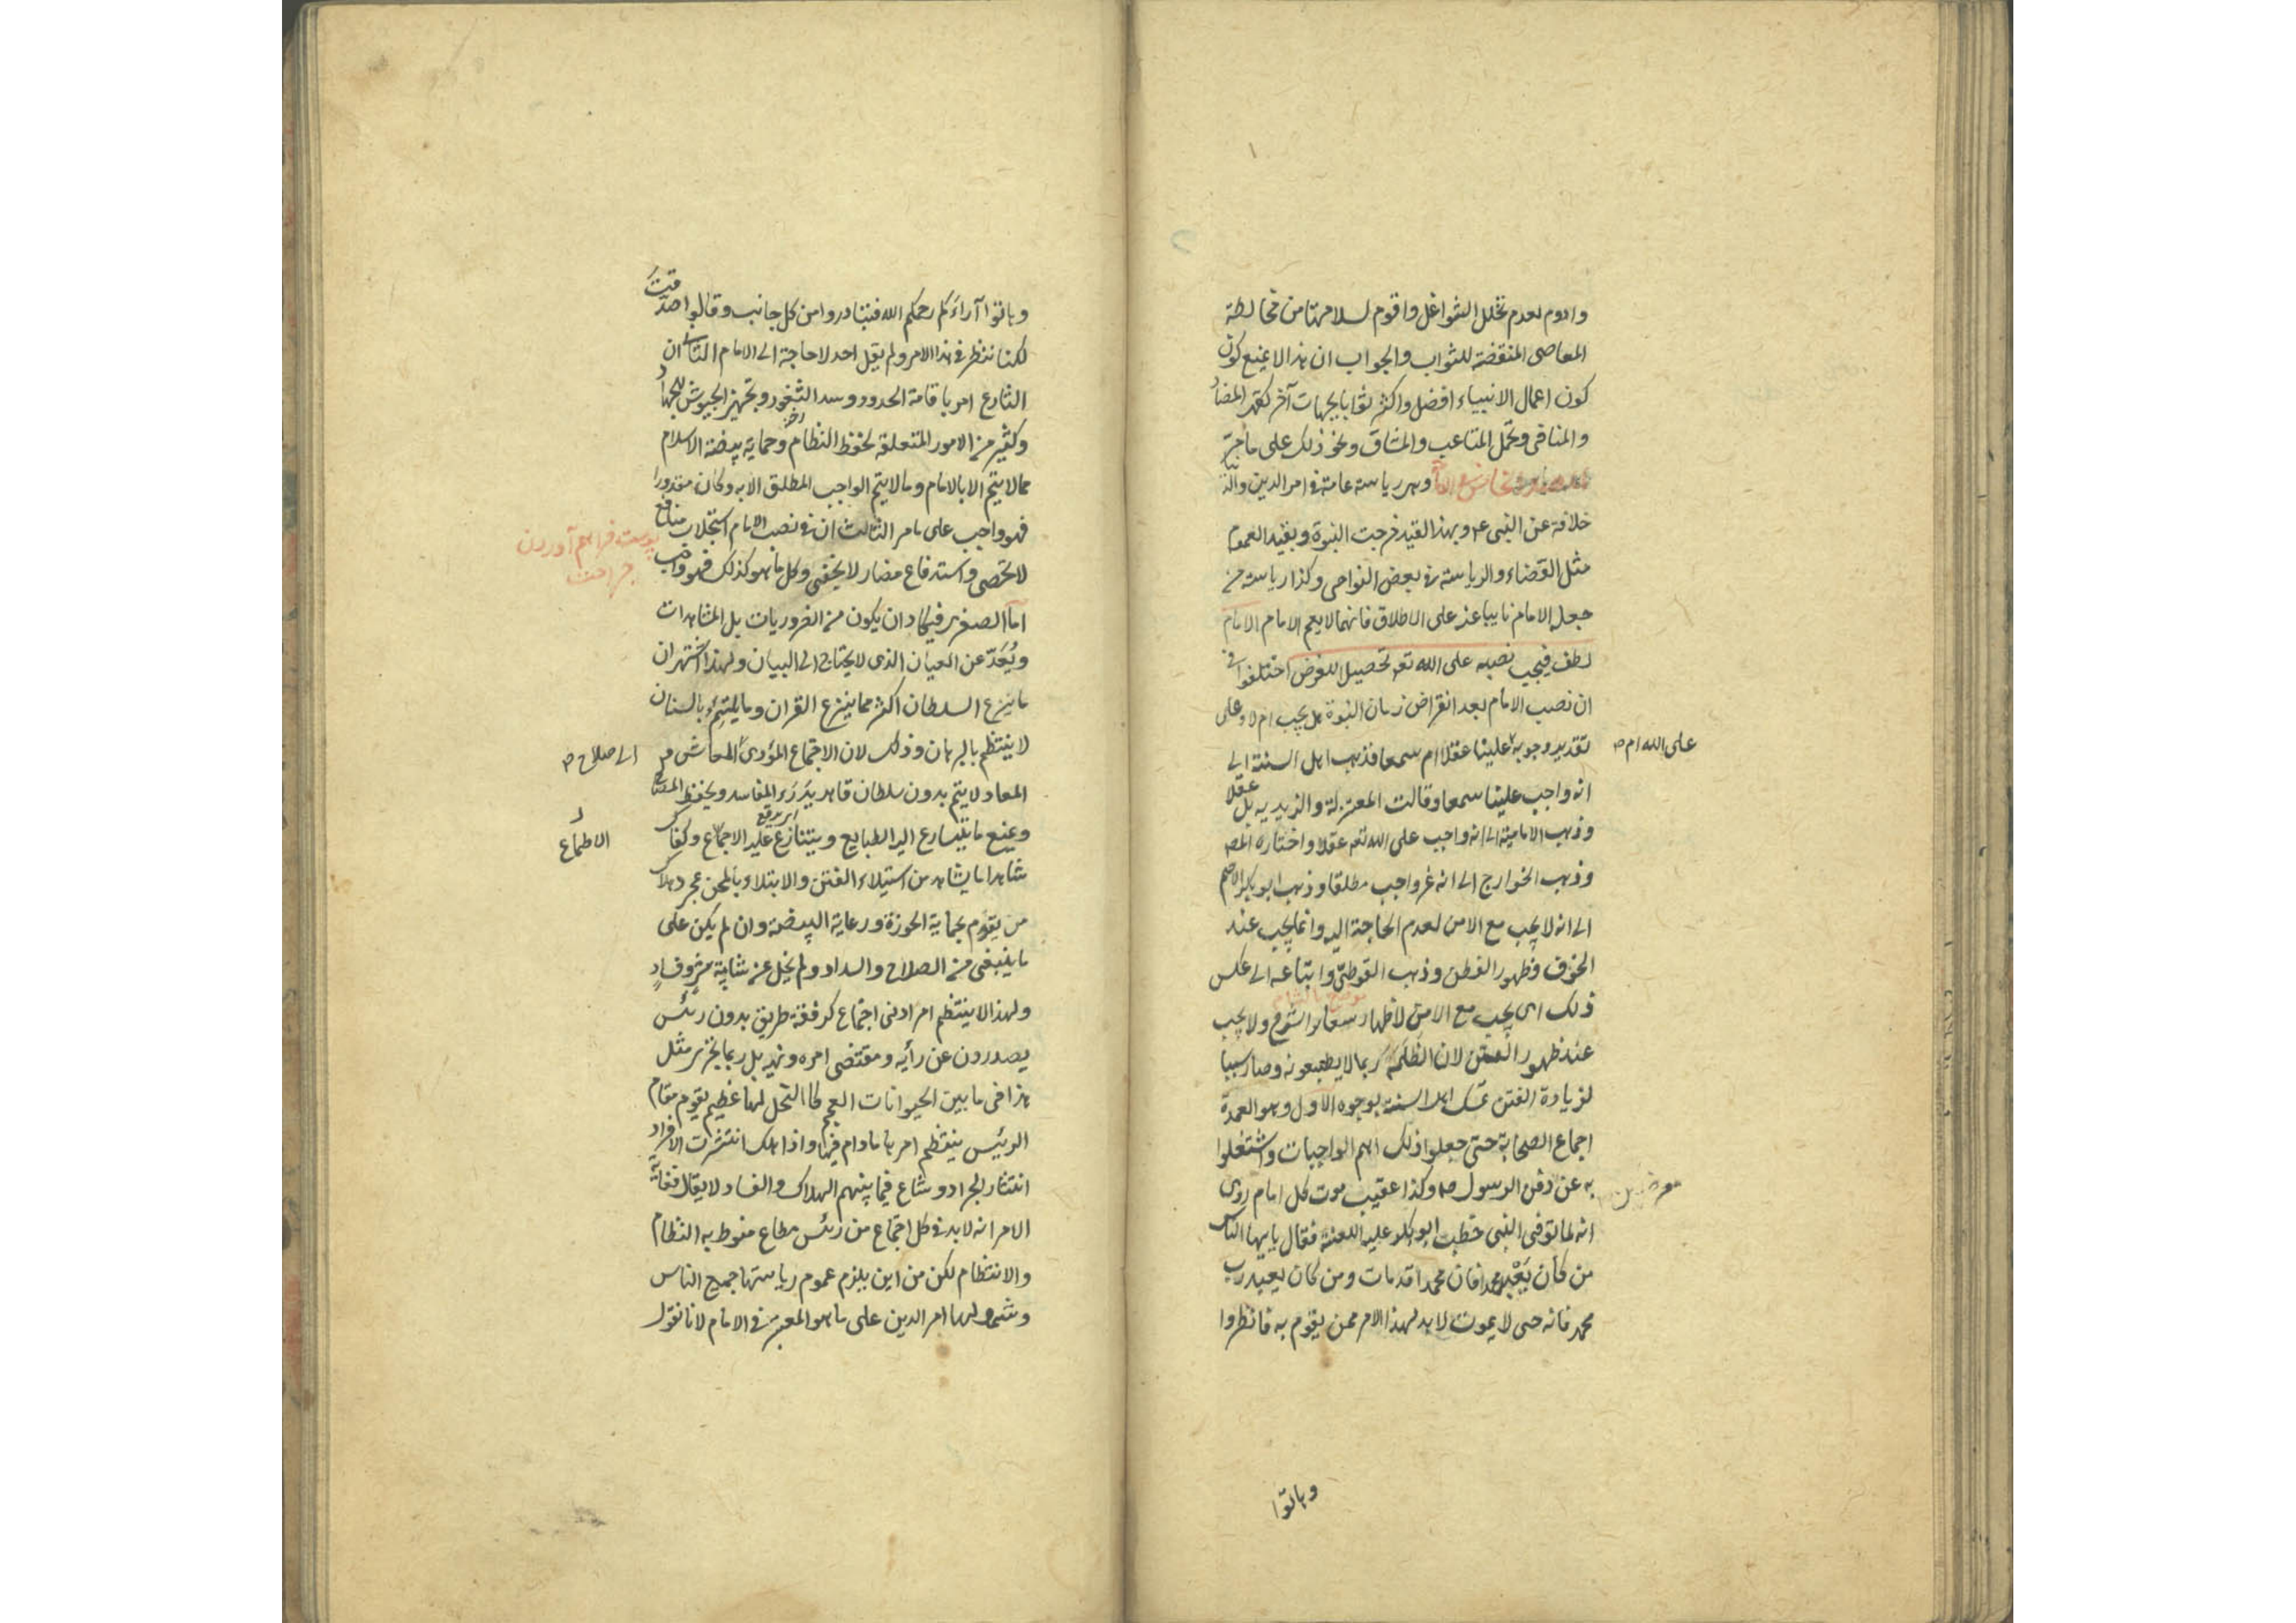 وادوم لعدم تخلل الشواغل واقوم لسلامتها من مخالطة
المعاصی المنقضة للثواب والجواب ان هذا لا یمنع کون
کون اعمال الانبیاء افضل واکثر ثوابا بجهات آخر کقهر المضاد
والمنافی وتحمل المتاعب والمشاق ونحو ذلک علی ما مر
وهی ریاسة عامة فی امر الدین والدنیا
خلافة عن النبی ۴ وبهذا القید خرجت النبوة وبقید العموم
مثل القضاء والریاسة فی بعض النواحی وکذا ریاسة من
جعله الامام نایبا عنه علی الاطلاق فانها لا یعم الامام الامام
لطف فیجب نصبه علی الله تعم تحصیلا للغرض اختلفوا فی
ان نصب الامام بعد انقراض زمان النبوة هل یجب ام لا وعلی
تقدیر وجوبه علینا عقلا ام سمعا فذهب اهل السنة الی
علی الله ام ص
انه واجب علینا سمعا وقالت المعتزلة والزیدیه بل عقلا
وذهب الامامیة الی انه واجب علی الله تعم عقلا واختاره المص
وذهب الخوارج الی انه غیر واجب مطلقا وذهب ابو بکر الاصم
الی انه لا یجب مع الامن لعدم الحاجة الیه وانما یجب عند
الخوف وظهور الفطن وذهب القوطی واتباعه الی عکس
ذلک ای یجب مع الامن لاظهار شعایر الشرع ولا یجب
عند ظهور الفتن لان الظلمة ربما لا یطیعونه وصار سببا
لزیادة الفتن تمسک اهل السنة بوجوه الاول وهو العمدة
اجماع الصحابة حتی جعلوا ذلک اهم الواجبات واشتغلوا
به عن دفن الرسول ص وکذا عقیب موت کل امام روی
انه لما توفی النبی خطب ابو بکر علیه اللعنة فقال یا ایها الناس
من کان یعبد محمدا فان محمدا قد مات ومن کان یعبد رب
محمد فانه حی لا یموت لا بد لهذا الامر ممن یقوم به فانظروا
وهاتوا
وهاتوا آراءکم رحمکم الله فتبادروا من کل جانب وقالوا صدقت
لکنا ننظر فی هذا الامر ولم یقل احد لا حاجة الی الامام الثانی ان
الشارع امر باقامة الحدود وسد الثغور وتجهیز الجیوش للجهاد
وکثیر من الامور المتعلقة بحفظ النظام وحمایة بیضة الاسلام
مما لا یتم الا بالامام وما لا یتم الواجب المطلق الا به وکان مقدورا
فهو واجب علی ما مر الثالث ان فی نصب الامام استجلاب منافع
لا تحصی واستدفاع مضار لا یخفی وکل ما هو کذلک فهو واجب
پوست فراهم آوردن
جراحت
اما الصغری فیکاد ان یکون من الضروریات بل المشاهدات
ویُعَدّ عن العیان الذی لا یحتاج الی البیان ولهذا اشتهر ان
ما یزع السلطان اکثر مما یزع القران وما یلتئم بالسنان
لا ینتظم بالبرهان وذلک لان الاجتماع المؤدی المعاش و
الی صلاح ص
المعاد لا یتم بدون سلطان قاهر یدرء المفاسد ویحفظ المصالح
ویمنع ما یتسارع الیه الطبایع ویتنازع علیه الاجماع وکفاک
الاطماع
شاهدا ما یشاهد من استیلاء الفتن والابتلاء بالمحن بمجرد هلاک
من یقوم بحمایة الحوزة ورعایة البیضة وان لم یکن علی
ما ینبغی من الصلاح والسداد ولم یخل عن شایبة شر وفساد
ولهذا لا ینتظم امر ادنی اجتماع کرفقة طریق بدون رئیس
یصدرون عن رأیه ومقتضی امره ونهیه بل ربما یجری مثل
هذا فی ما بین الحیوانات العجم کالنحل لها عظیم یقوم مقام
الرئیس ینتظم امرها ما دام فیها واذا هلک انتشرت الافراد
انتشار الجراد وشاع فیما بینهم الهلاک والفساد لا یقال فغایة
الامر انه لا بد فی کل اجتماع من رئیس مطاع منوط به النظام
والانتظام لکن من این یلزم عموم ریاستها جمیع الناس
وشمولها امر الدین علی ما هو المعتبر فی الامام لانا نقول